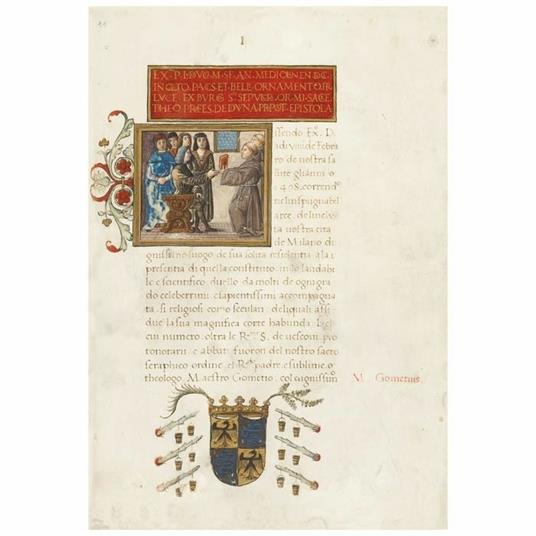 I
EX. P. LVDVO. M. SF. AN. MEDIOLNEN. DC.
INCLITO. PACIS. ET. BELLI. ORNAMENTO. FR.
LVCE. EX BVRG. S. SEPVL. OR. MI. SACE.
THEO. PFES. DE DVNA. PROPOT. EPISTOLA
ssendo Ex. D.
a di viiii. de Febra
ro de nostra sa
lute gli anni
498. correndo
ne linspugnabil
arce. de linclyta
vostra cita
de Milano di
gnissimo luogo de sua solita residentia a la
presentia di quella constituto in lo landabi
le e scientifico duello da molti de ogni gra
do celeberrimi e sapientissimi accompagna
ta. si religiosi como seculari. deliquali assi
due la sua magnifica corte habunda. Del
cui numero. oltra le S. de uescoui. pro
tonotarii e abbati fuoron del nostro sacro
seraphico ordine el padre. e sublime
theologo. Maestro Gometio. col
M. Gometius.